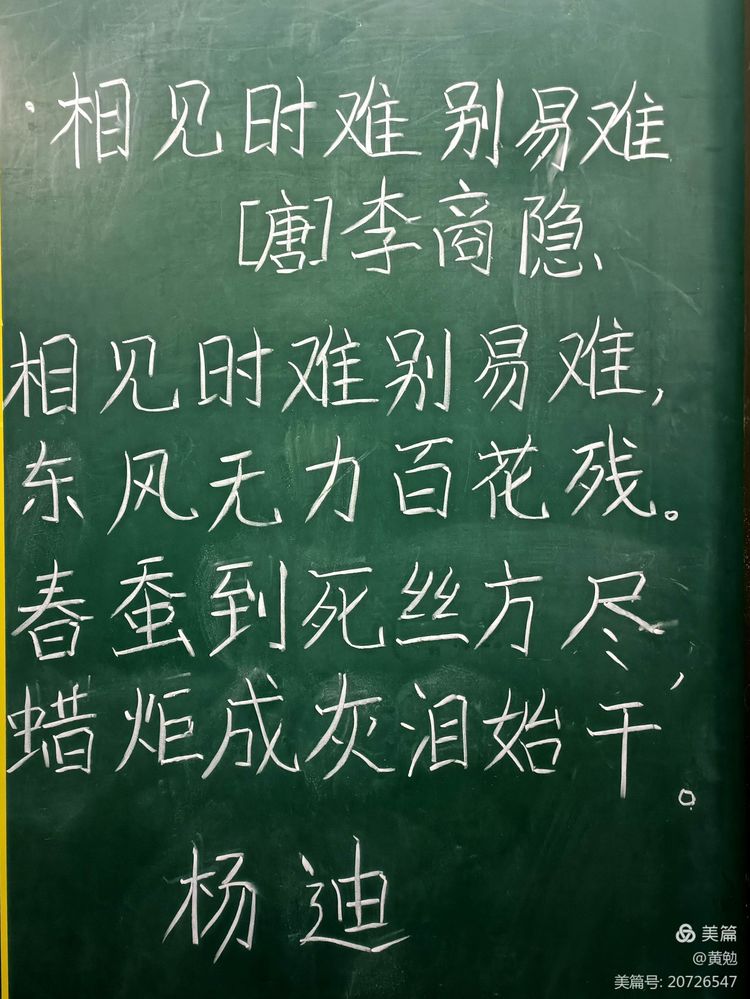 ·相见时难别易难
[唐]李商隐
相见时难别易难，
东风无力百花残。
春蚕到死丝方尽，
蜡炬成灰泪始干。
杨迪
美篇
@黄勉
美篇号: 20726547